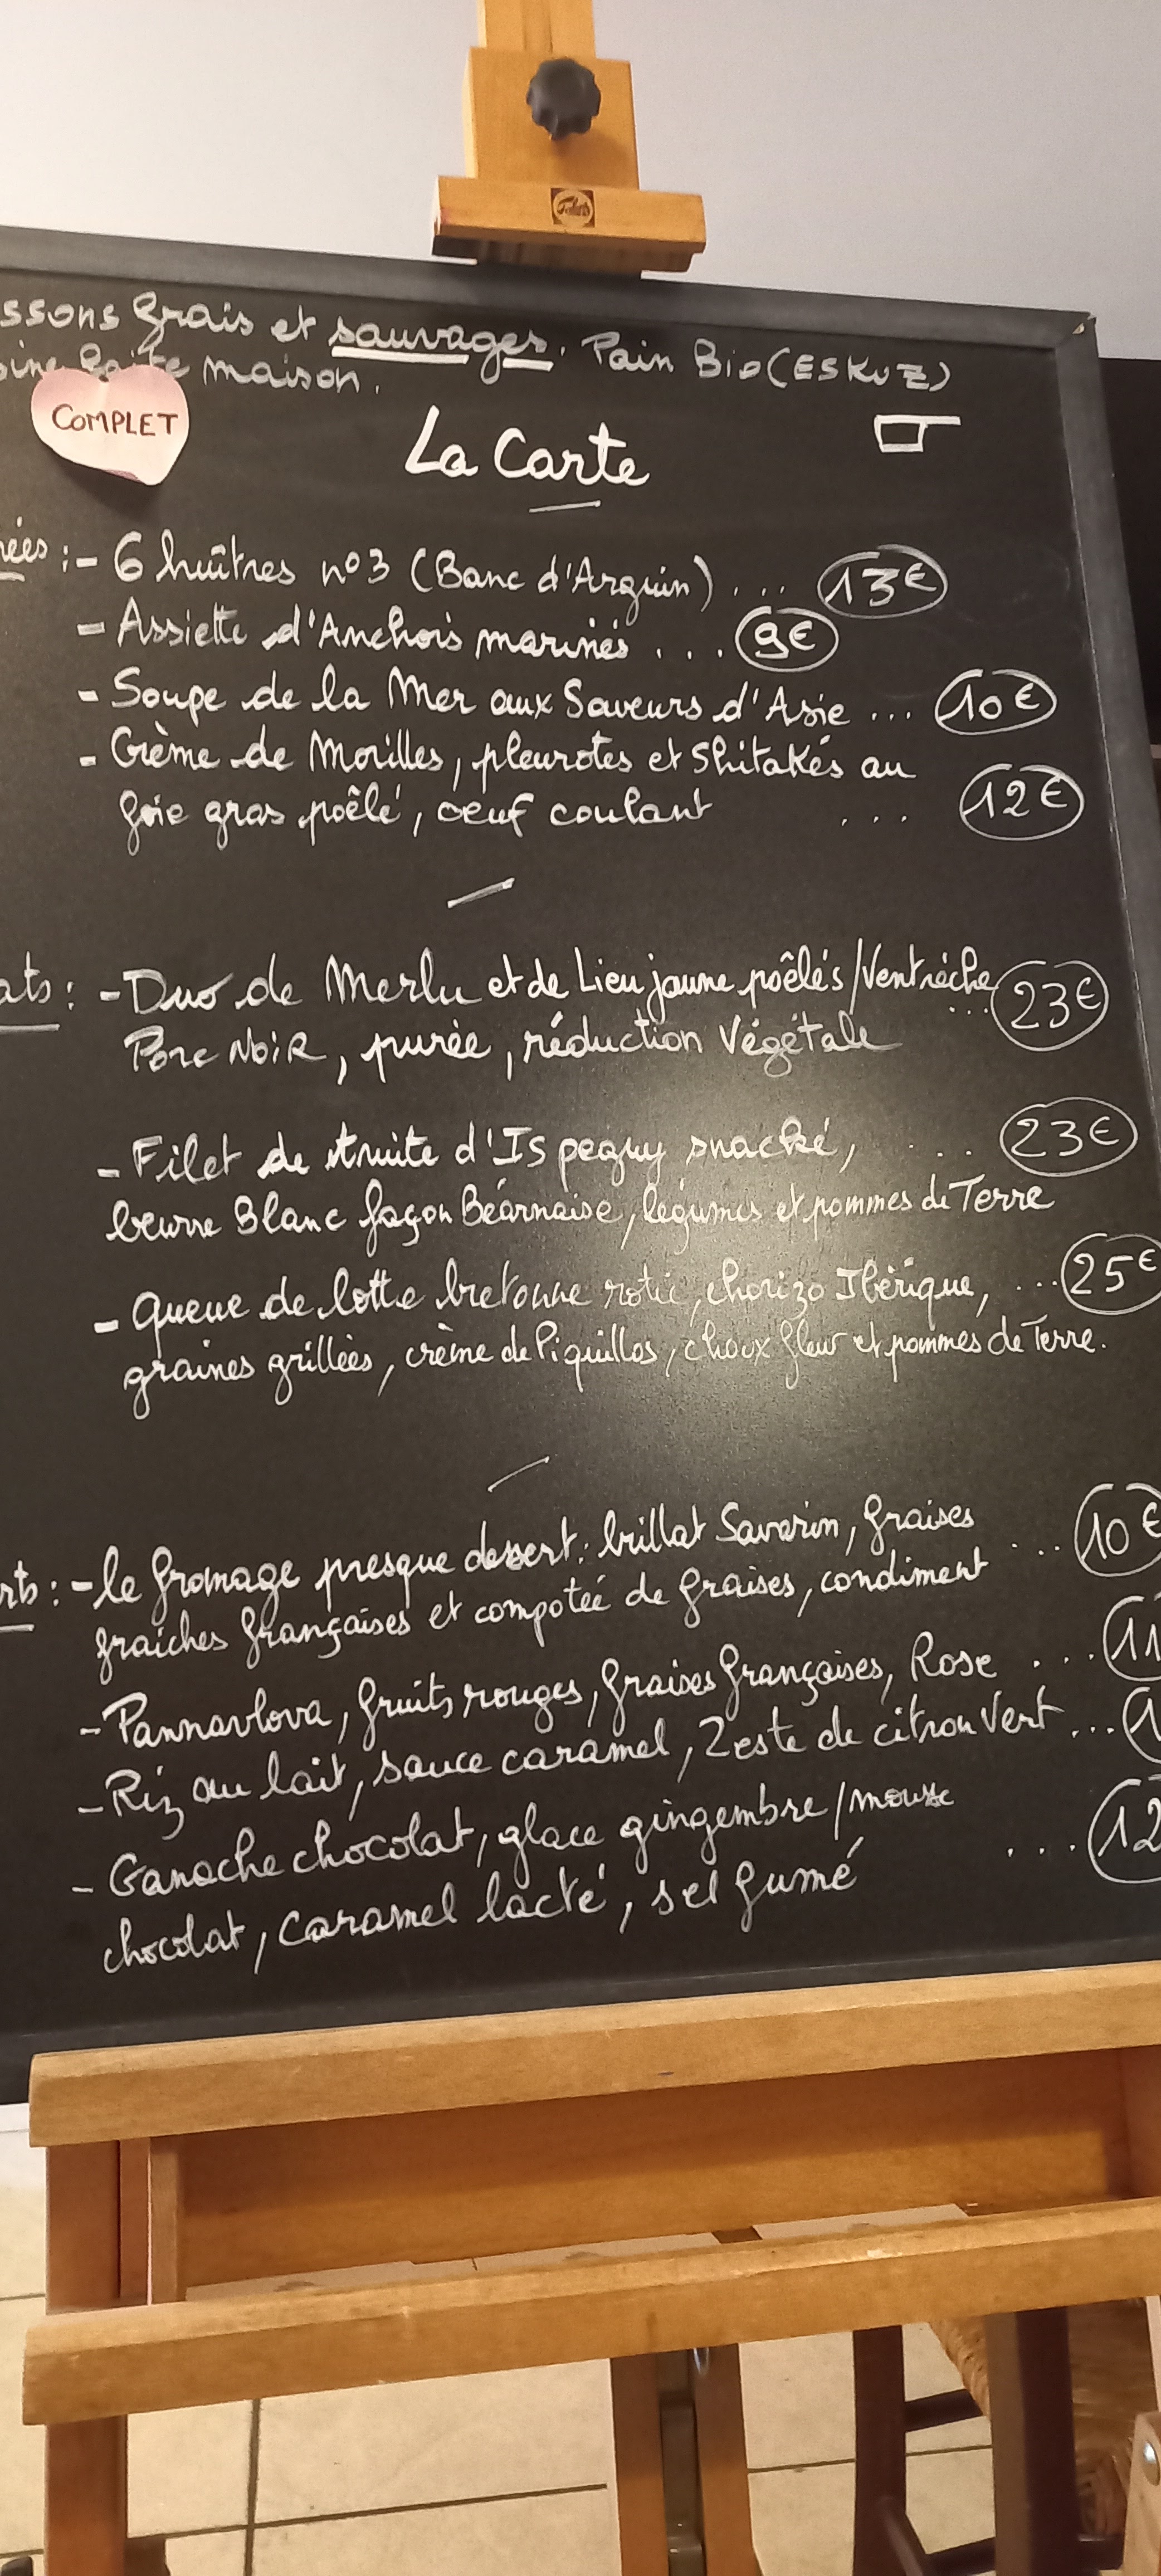 ssons frais et sauvages. Pain Bio (ESKUZ)
maison.
COMPLET
La Carte
ées : - 6 huîtres n°3 (Banc d'Arguin) ... 13€
- Assiette d'Anchois marinés ... 9€
- Soupe de la Mer aux Saveurs d'Asie ... 10€
- Crème de Morilles, pleurotes et Shitakés au
foie gras poêlé, oeuf coulant ... 12€
ats : - Duo de Merlu et de Lieu jaune poêlés / Ventrèche ... 23€
Porc NoiR, purée, réduction Végétale
- Filet de truite d'Ispeguy snacké, ... 23€
beurre Blanc façon Béarnaise, légumes et pommes de Terre
- Queue de lotte bretonne rotie, chorizo Ibérique, ... 25€
graines grillées, crème de Piquillos, choux fleur et pommes de Terre.
rts : - le fromage presque dessert : brillat Savarin, fraises ... 10€
fraiches françaises et compotée de fraises, condiment
- Pannavlova, fruits rouges, fraises françaises, Rose ... 11
- Riz au lait, sauce caramel, Zeste de citron Vert ... 1
- Ganache chocolat, glace gingembre / mousse
chocolat, caramel lacté, sel fumé ... 12